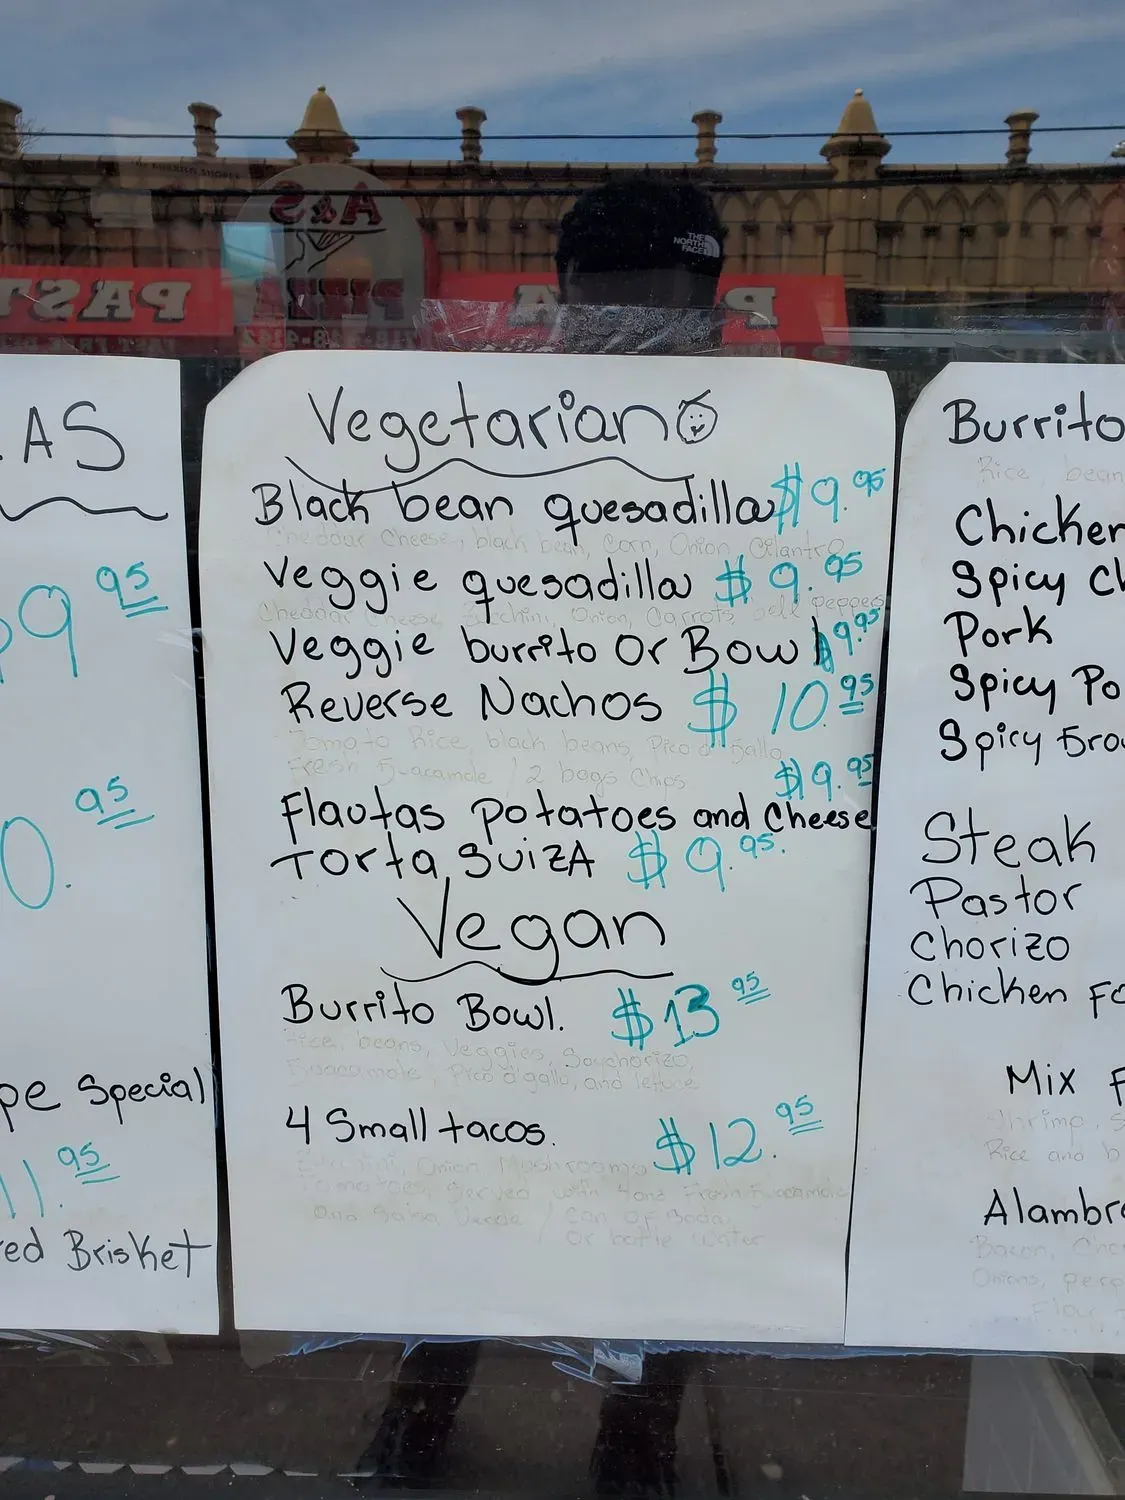 A&S
PAST
PIZZA
THE
NORTH
FACE
P
AS
9 95
95
pe Special
11.95
red Brisket
Vegetarian
Black bean quesadilla $9.95
Cheddar Cheese, black bean, Corn, Onion, Cilantro
Veggie quesadilla $9.95
Cheddar Cheese, Zucchini, Onion, Carrots, bell Peppers
Veggie burrito Or Bowl $9.95
Reverse Nachos $10.95
Tomato Rice, black beans, Pico d' Gallo,
Fresh Guacamole / 2 bags Chips
$9.95
Flautas Potatoes and Cheese
Torta Suiza $9.95.
Vegan
Burrito Bowl. $13 95
Rice, beans, Veggies, Soychorizo,
Guacamole, Pico d'gallo, and lettuce
4 Small tacos. $12.95
Zucchini, Onion Mushrooms
Tomatoes, Served with 4onz Fresh Guacamole
and Salsa Verde / Can of Soda,
Or bottle water
Burrito
Rice, bean
Chicken
Spicy Ch
Pork
Spicy Po
Spicy Gro
Steak
Pastor
Chorizo
Chicken Fa
Mix F
Shrimp, S
Rice and b
Alambre
Bacon, Cho
Onions, pepp
Flour t